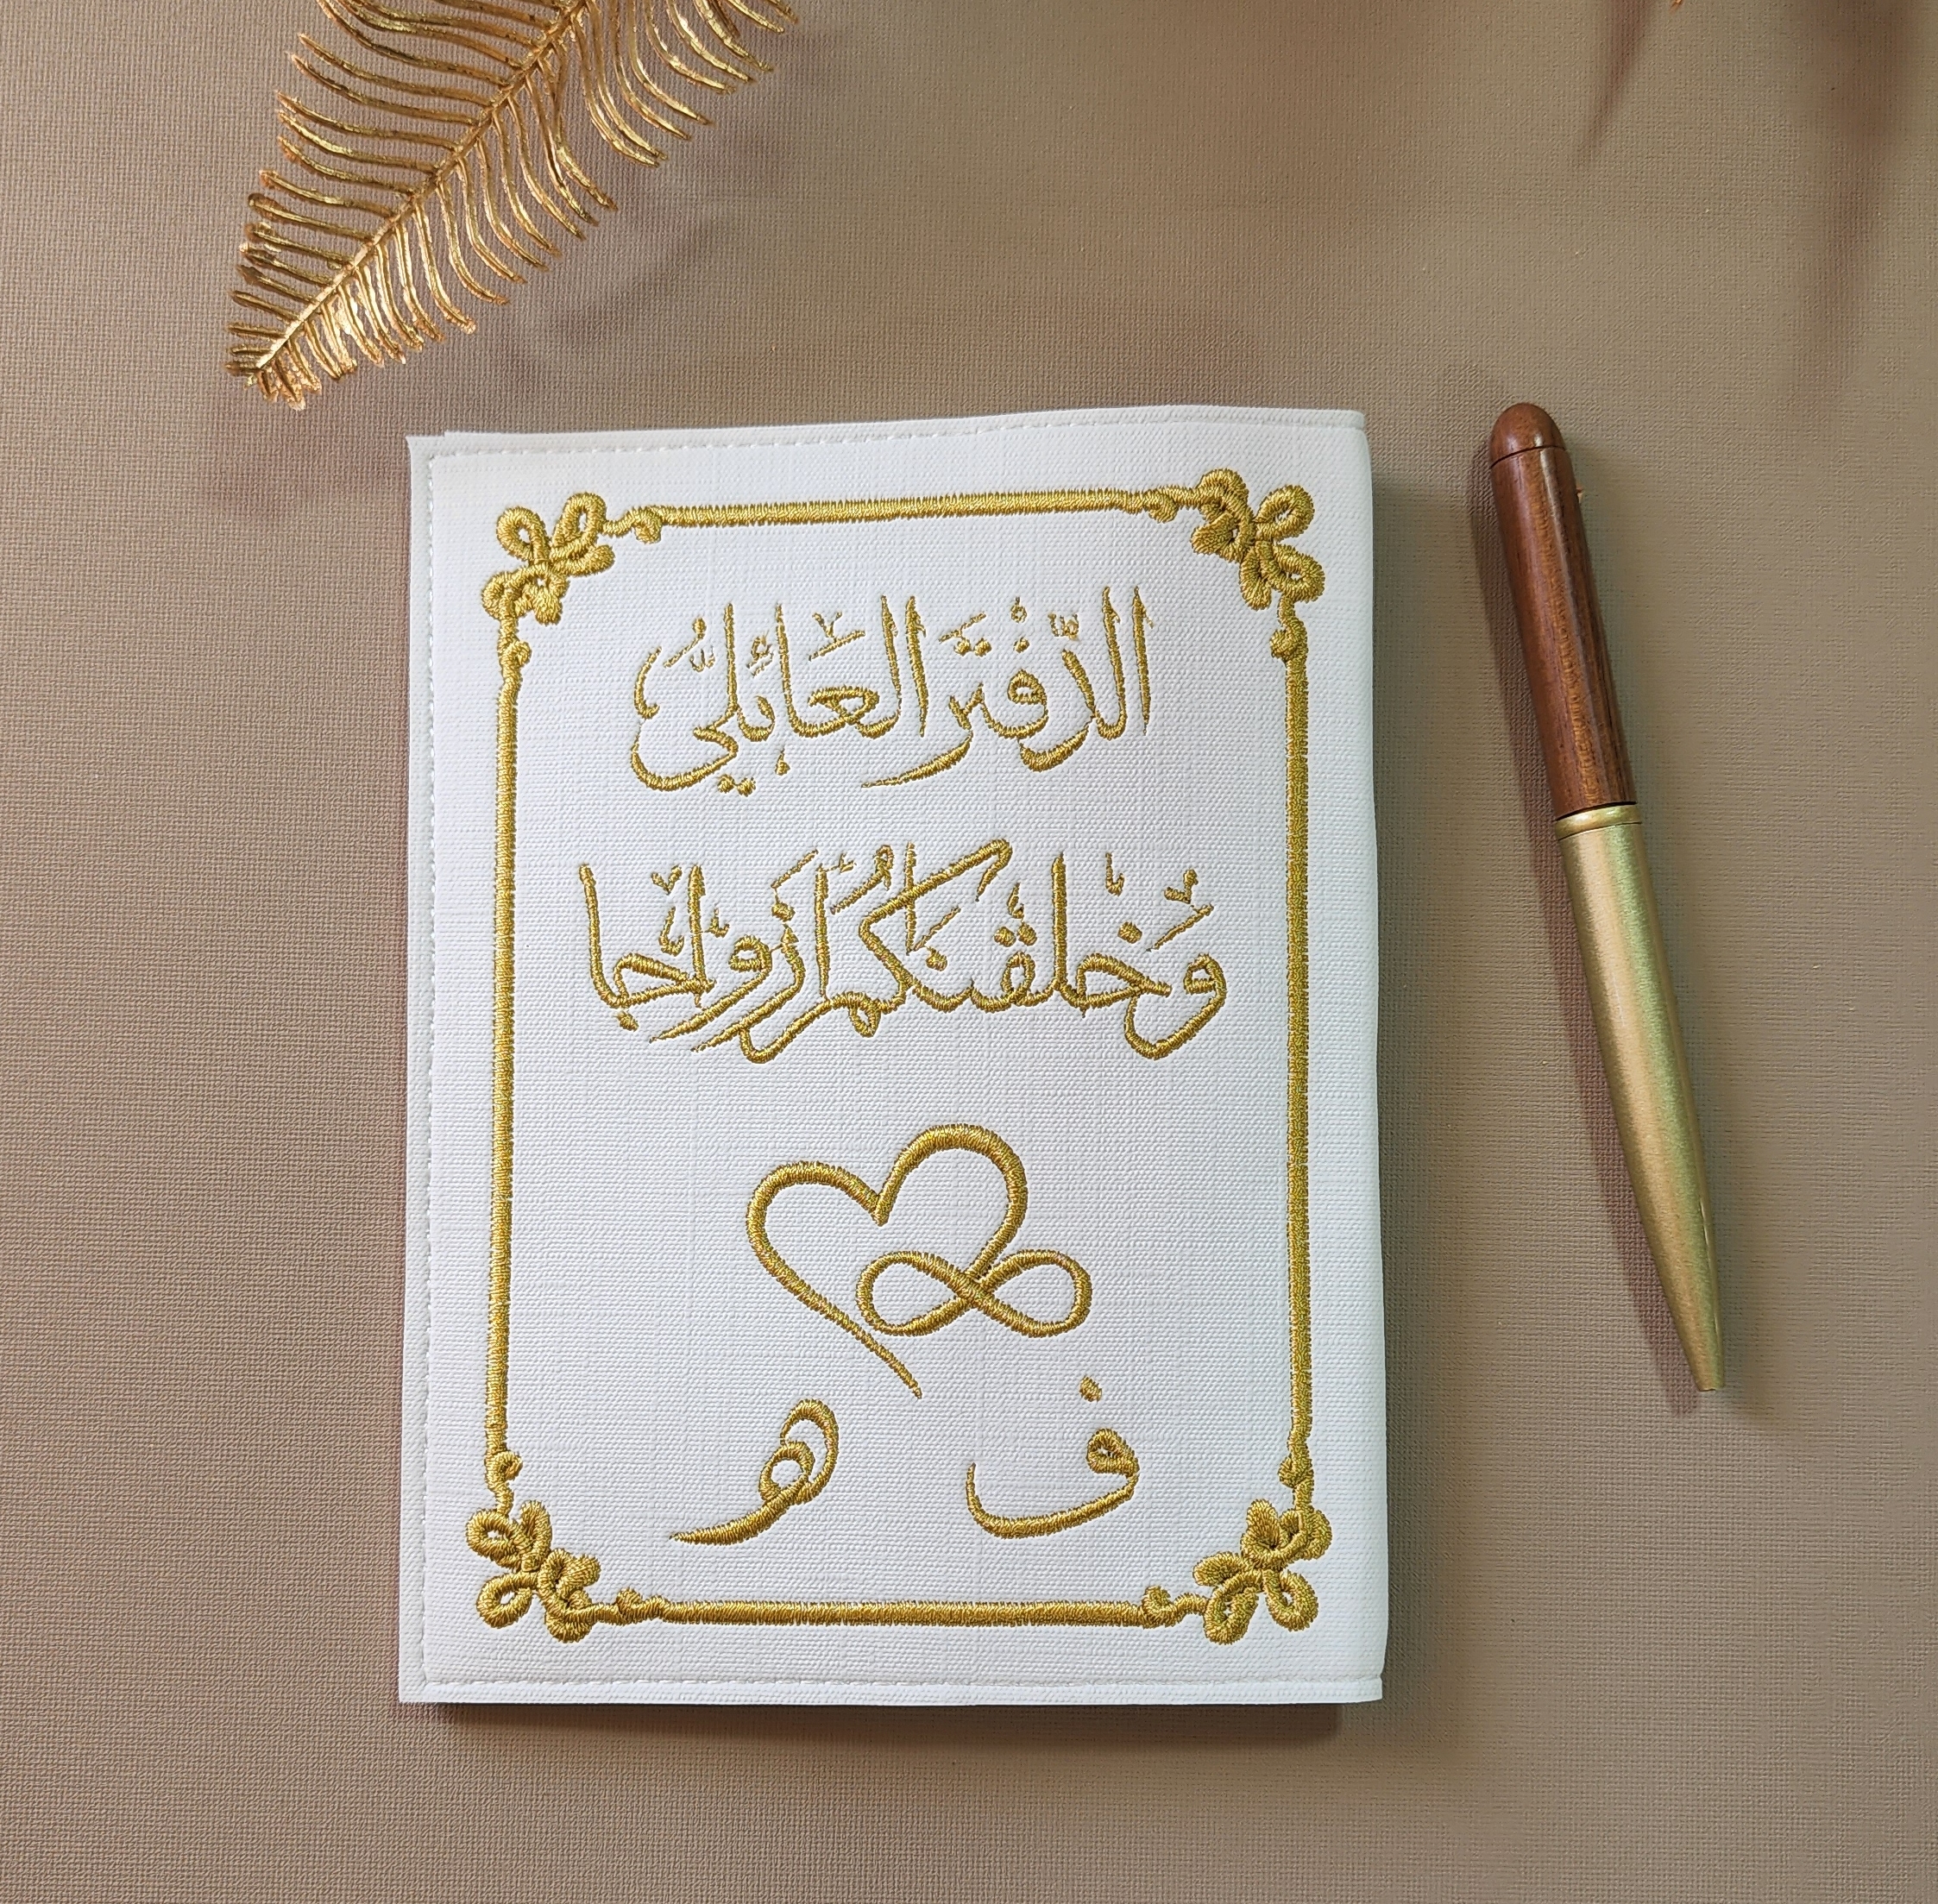 الدّفْتَر العَائِليُّ
وَخلقنكم ازواجا
ف هـ